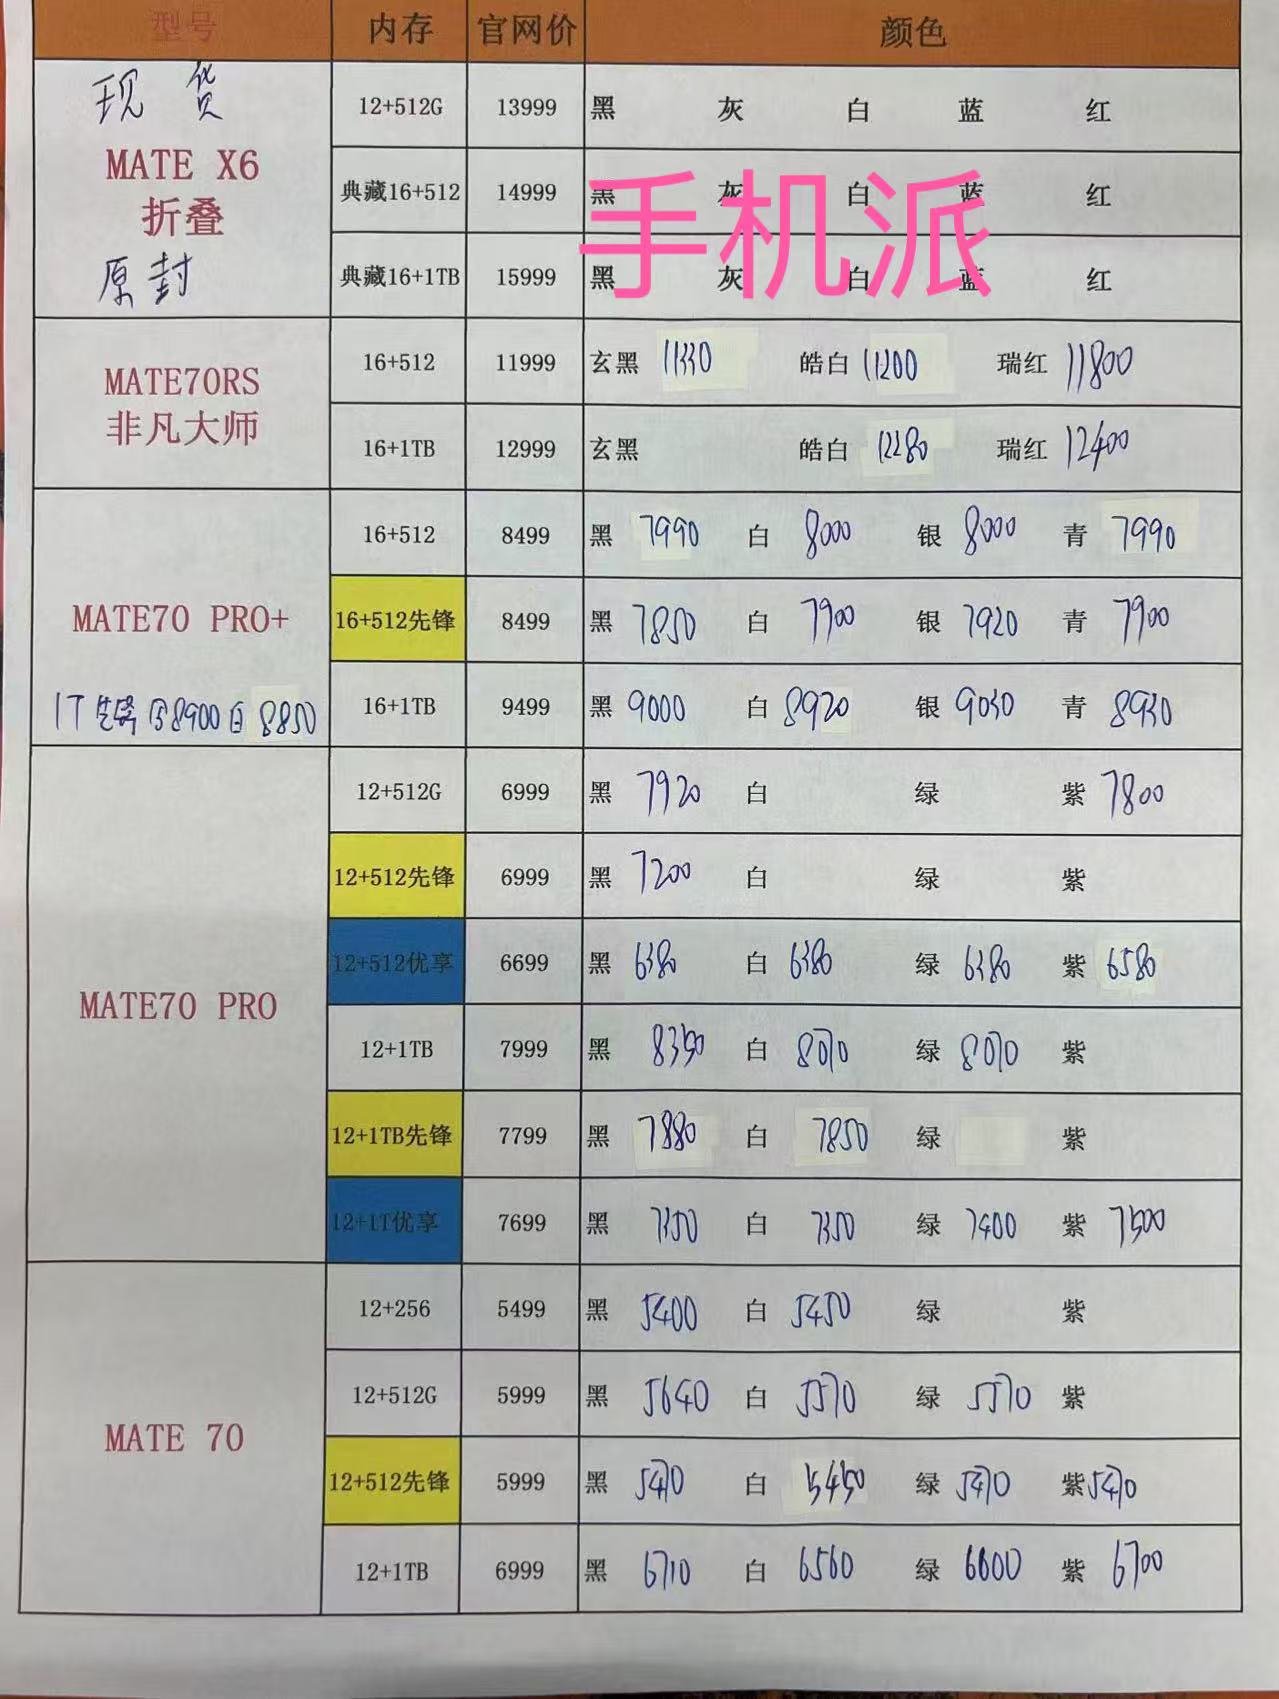 型号 内存 官网价 颜色
现货 MATE X6 折叠 原封
12+512G 13999 黑 灰 白 蓝 红
典藏16+512 14999 黑 灰 白 蓝 红
手机派
典藏16+1TB 15999 黑 灰 白 蓝 红
MATE70RS 非凡大师
16+512 11999 玄黑 11330 皓白 11200 瑞红 11800
16+1TB 12999 玄黑 皓白 12280 瑞红 12400
MATE70 PRO+
16+512 8499 黑 7990 白 8000 银 8000 青 7990
16+512先锋 8499 黑 7850 白 7900 银 7920 青 7900
1T先锋 8900 白 8850
16+1TB 9499 黑 9000 白 8920 银 9030 青 8930
MATE70 PRO
12+512G 6999 黑 7920 白 绿 紫 7800
12+512先锋 6999 黑 7200 白 绿 紫
12+512优享 6699 黑 6380 白 6380 绿 6380 紫 6580
12+1TB 7999 黑 8350 白 8070 绿 8070 紫
12+1TB先锋 7799 黑 7880 白 7850 绿 紫
12+1T优享 7699 黑 7350 白 7350 绿 7400 紫 7500
MATE 70
12+256 5499 黑 5400 白 5450 绿 紫
12+512G 5999 黑 5640 白 5570 绿 5570 紫
12+512先锋 5999 黑 5470 白 5450 绿 5470 紫 5470
12+1TB 6999 黑 6710 白 6560 绿 6600 紫 6700